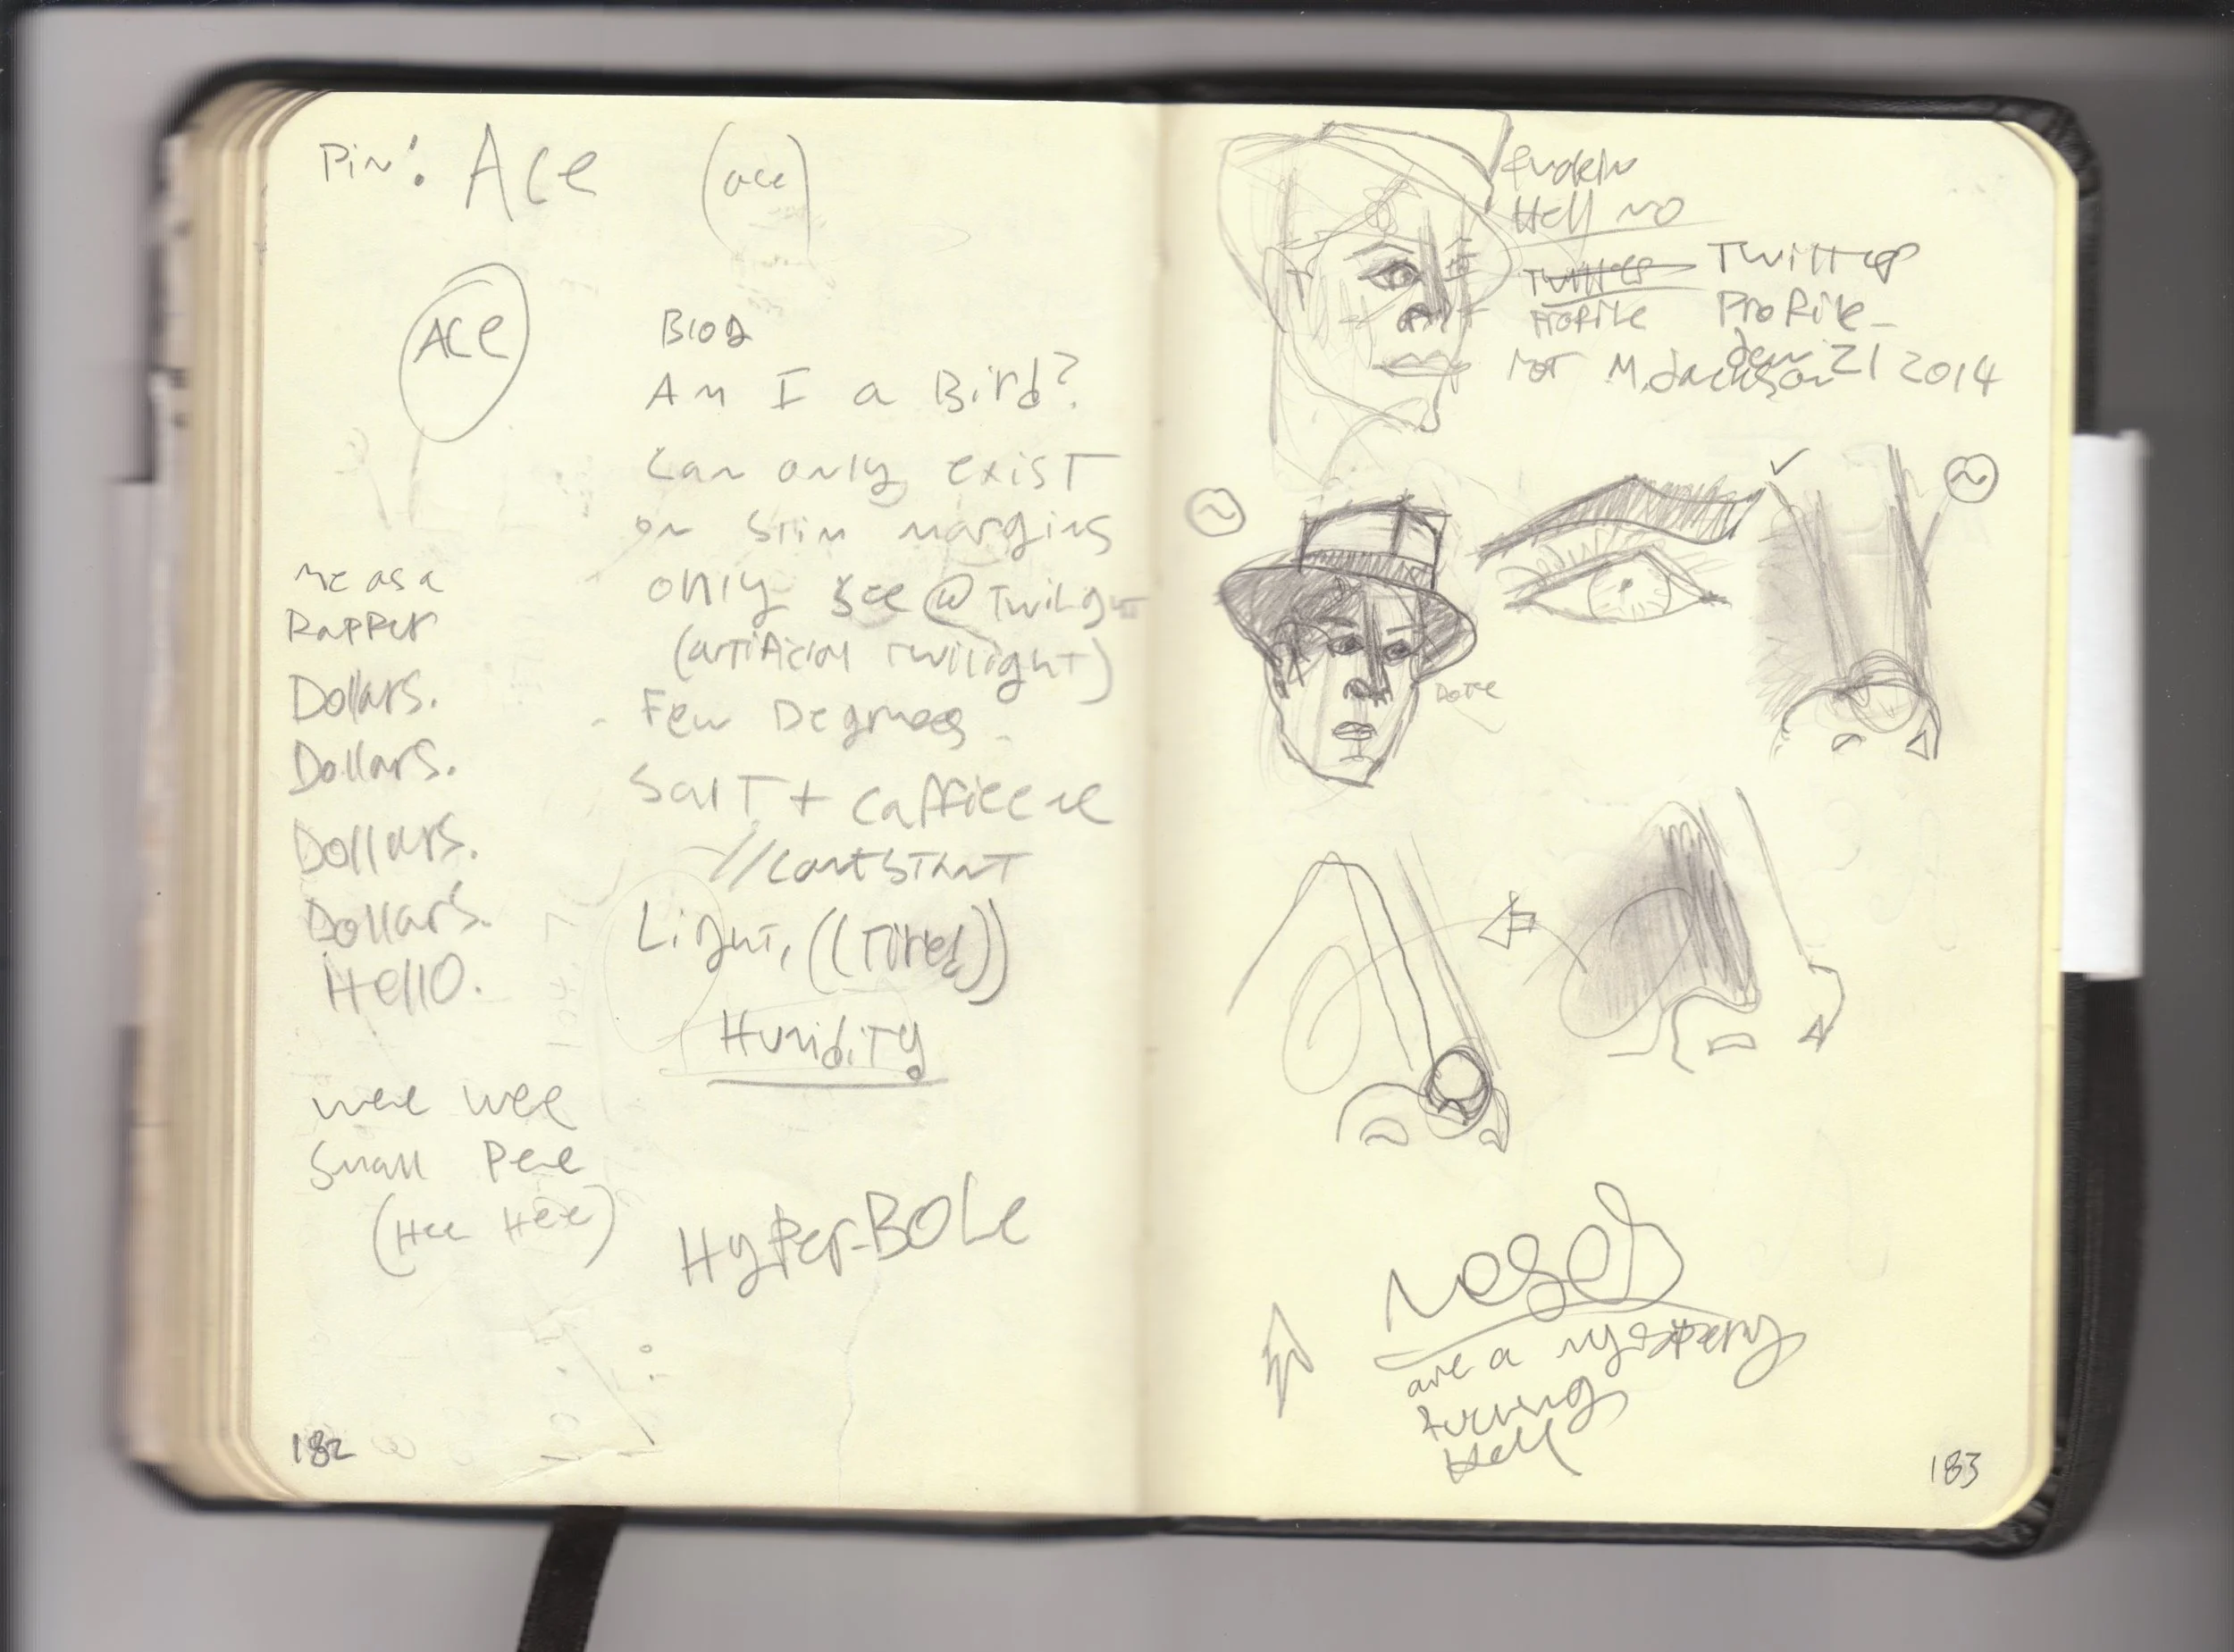 Pin: Ace (ace)
Ace
Blog
Am I a Bird?
Can only exist
on slim margins
only see @ Twilight
(artificial twilight)
Few Degrees
Salt + caffieene
// constant
Light, ((Tired))
Humidity
Hyper-BOLe
me as a
Rapper
Dollars.
Dollars.
Dollars.
Dollars.
Hello.
wee wee
Small Pee
(Hee Hee)
182
fuckin
Hell no
Twitter
Profile
Twitter
Profile-
Jan 21 2014
Not M. Jackson
Noses
are a mystery
fucking
Hell
183